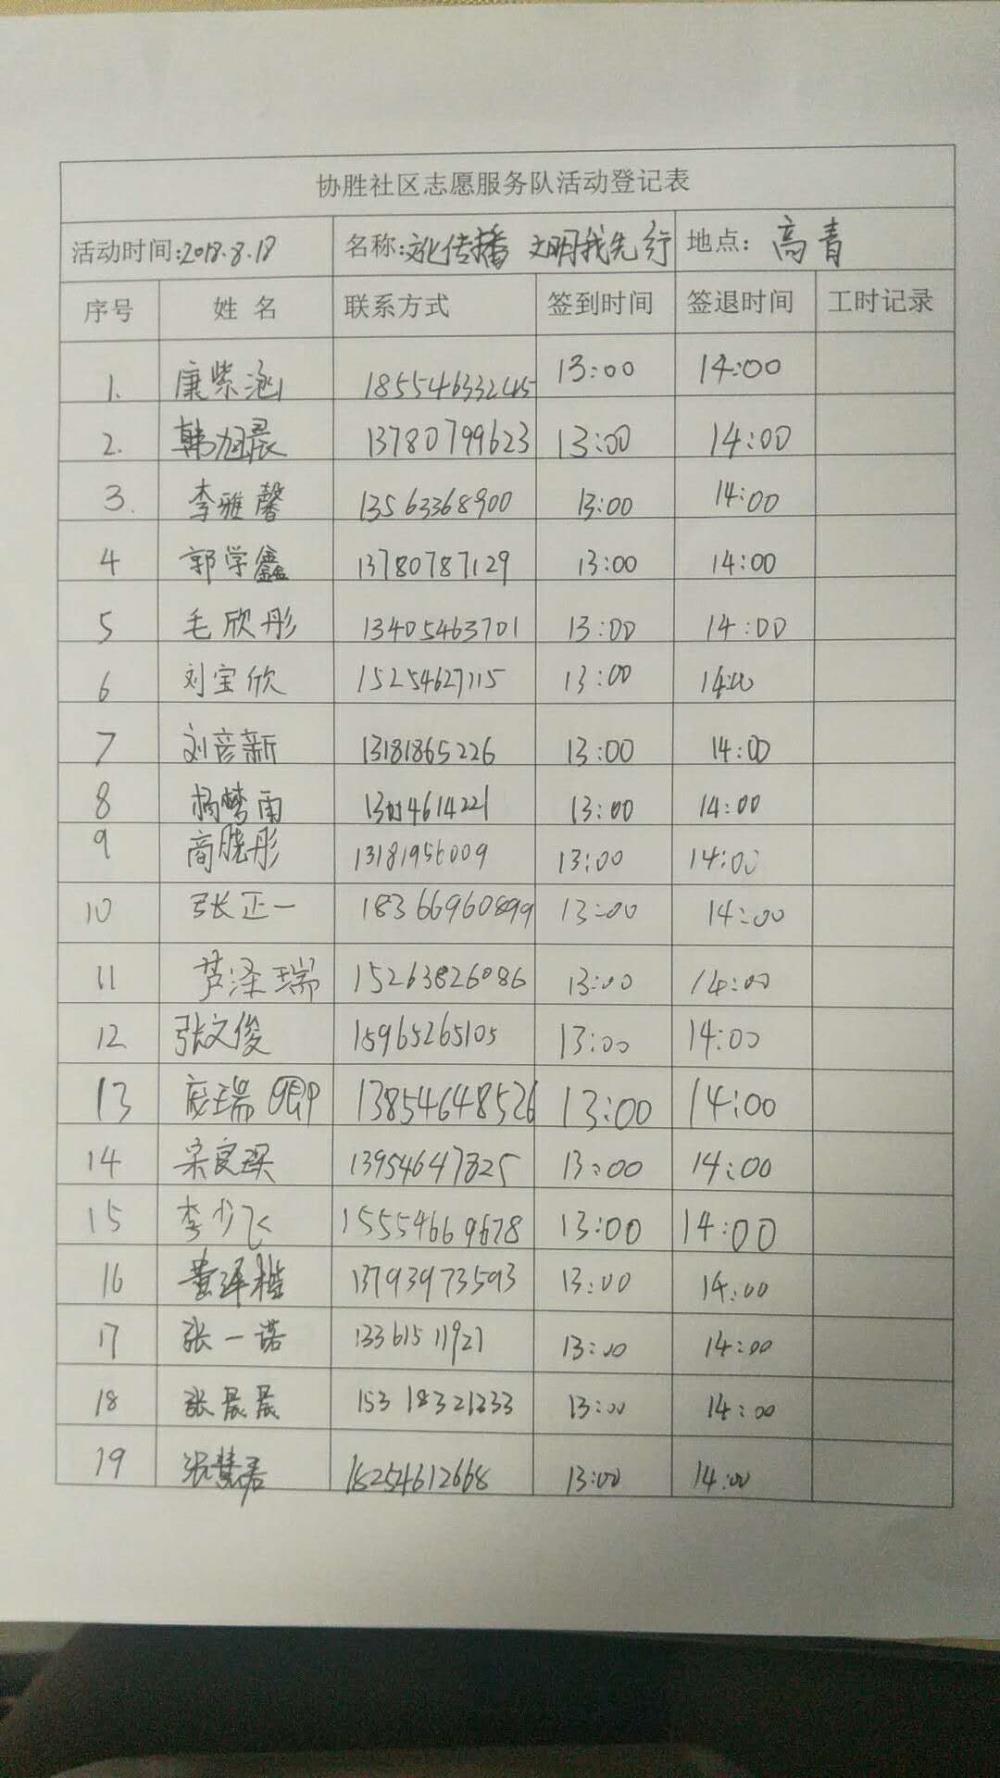 协胜社区志愿服务队活动登记表
活动时间:2018.8.18 名称:文化传播 文明我先行 地点: 高青
序号 姓名 联系方式 签到时间 签退时间 工时记录
1. 康紫涵 18554633245 13:00 14:00
2. 韩旭晨 13780799623 13:00 14:00
3. 李雅馨 13563368900 13:00 14:00
4 郭学鑫 13780787129 13:00 14:00
5 毛欣彤 13405463701 13:00 14:00
6 刘宝欣 15254627115 13:00 14:00
7 刘彦新 13181865226 13:00 14:00
8 杨梦雨 13:00 14:00
9 商晓彤 13181956009 13:00 14:00
10 张正一 18366960899 13:00 14:00
11 芦泽瑞 15263826086 13:00 14:00
12 张文俊 15965265105 13:00 14:00
13 瑞 13854648526 13:00 14:00
14 宋良琛 13954647825 13:00 14:00
15 李少飞 15554669678 13:00 14:00
16 黄泽楷 13793973593 13:00 14:00
17 张一诺 13361511927 13:00 14:00
18 张晨晨 15318321333 13:00 14:00
19 张慧君 18254612668 13:00 14:00